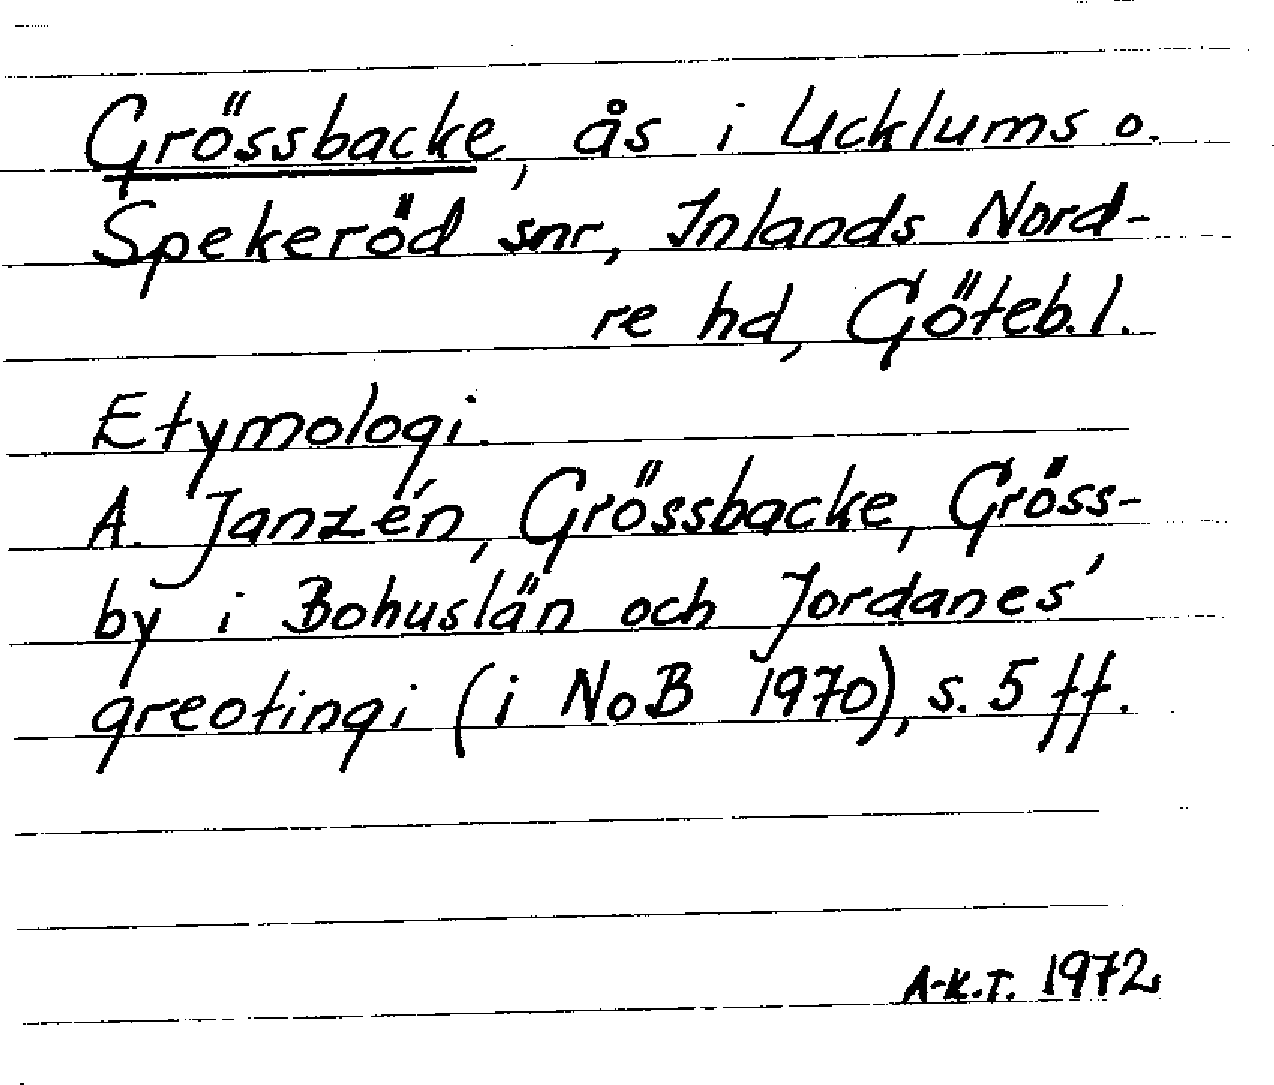 Grössbacke, ås i Ucklums o.
Spekeröd snr, Inlands Nord-
re hd, Göteb. l.
Etymologi.
A. Janzén, Grössbacke, Gröss-
by i Bohuslän och Jordanes'
greotingi (i NoB 1970), s. 5 ff.
A-K.T. 1972